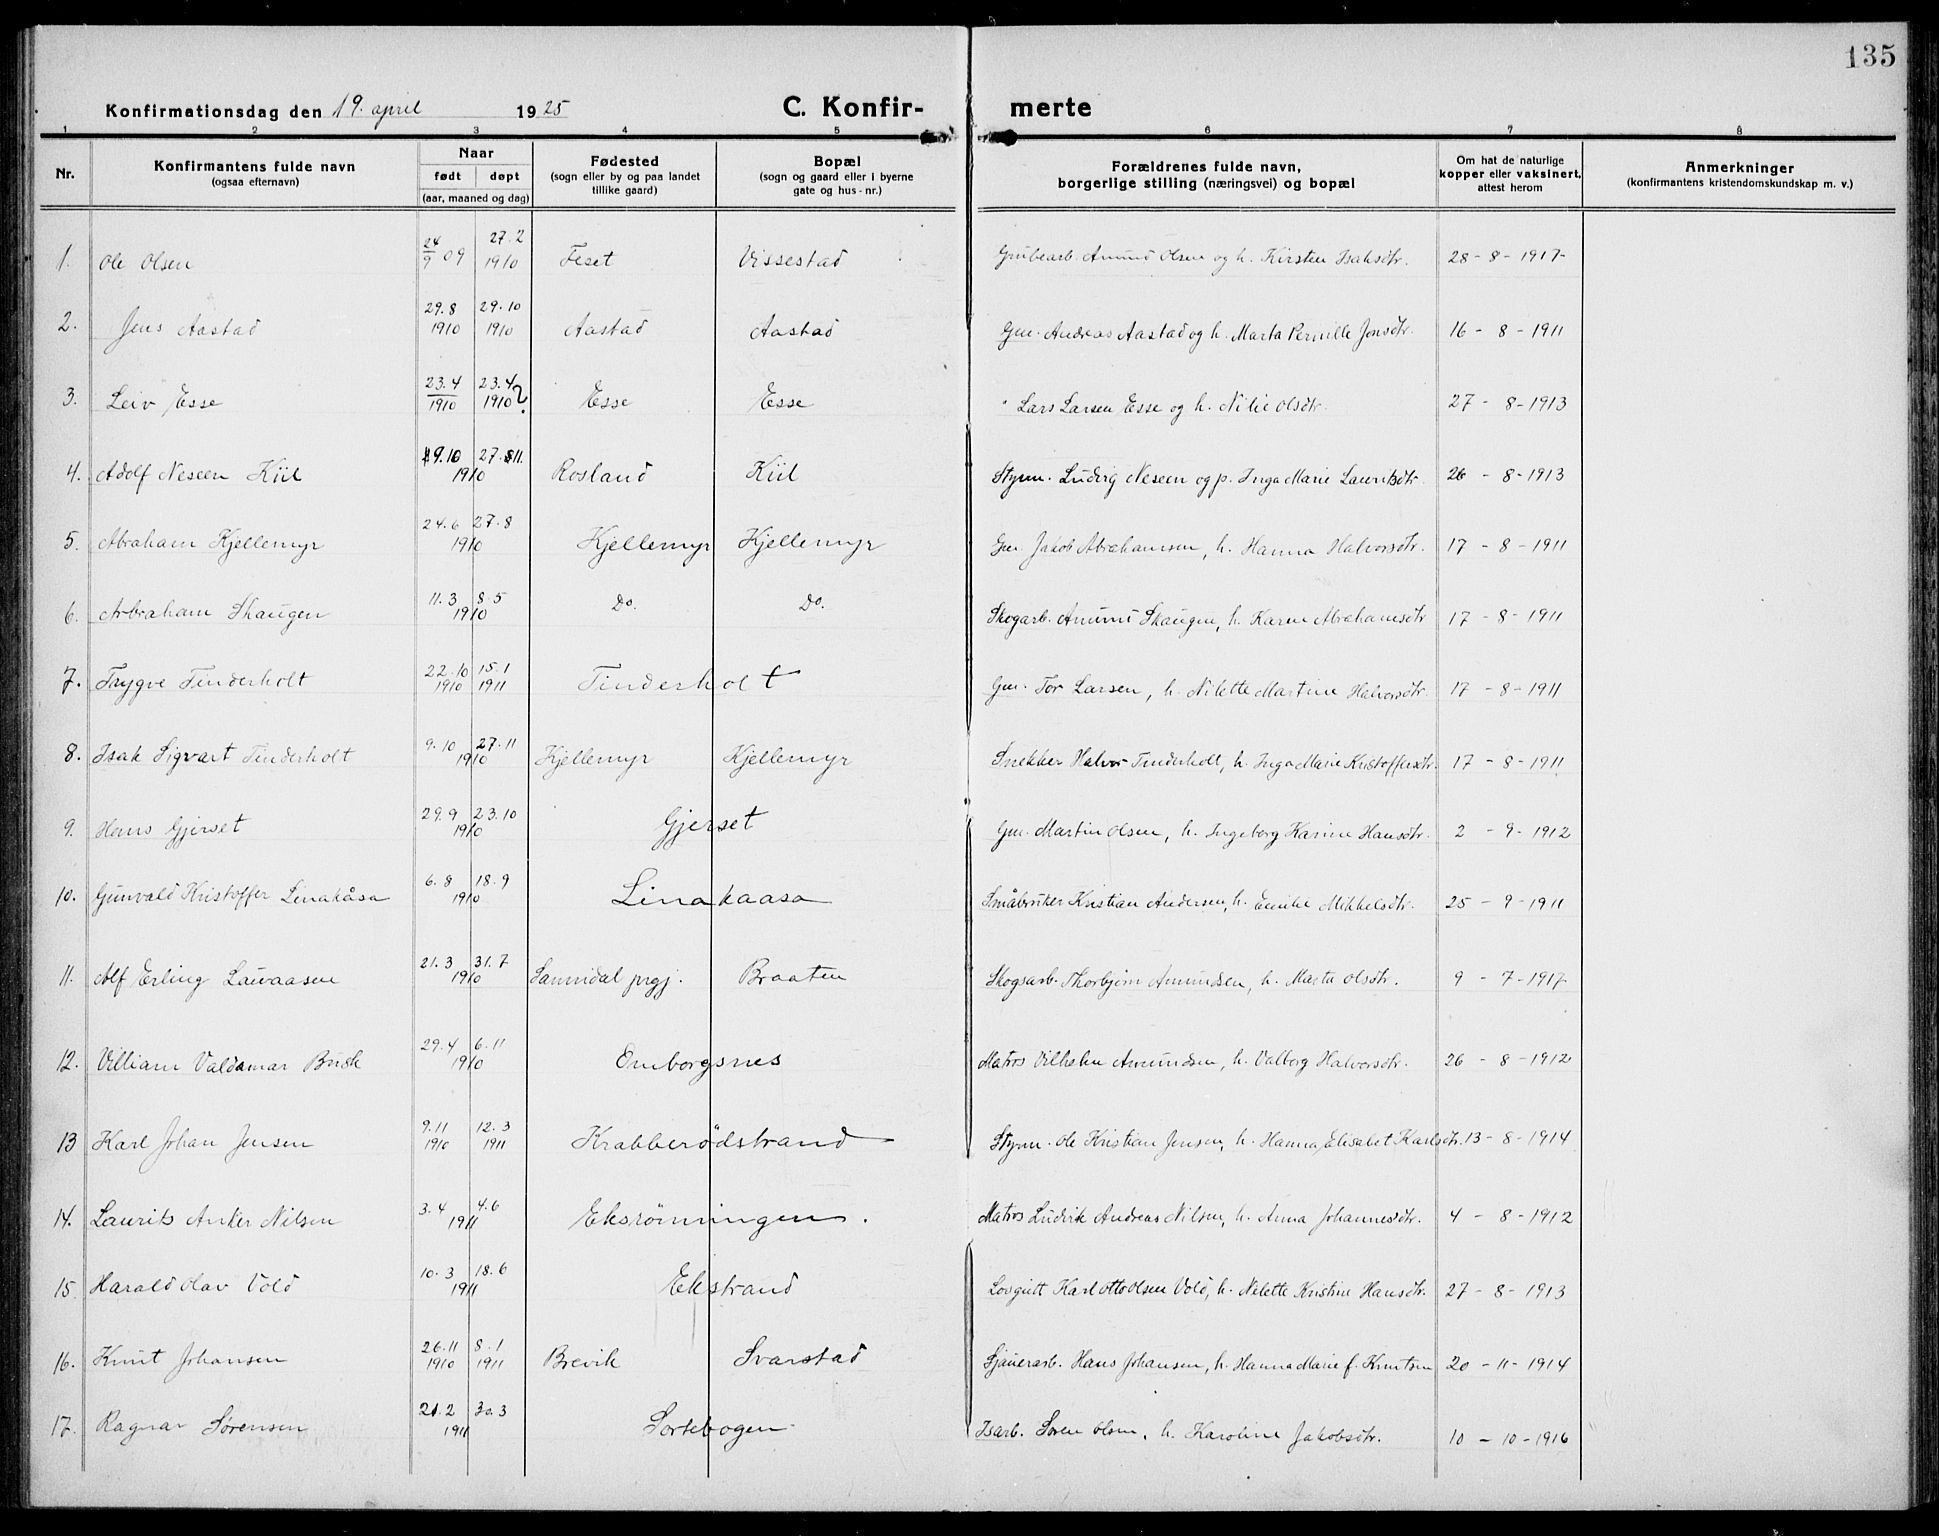 135
Konfirmationsdag den 19. april 1925 C. Konfir- merte
1 2 3 4 5 6 7 8
Nr. Konfirmantens fulde navn (ogsaa efternavn) Naar født døpt (aar, maaned og dag) Fødested (sogn eller by og paa landet tillike gaard) Bopæl (sogn og gaard eller i byerne gate og hus-nr.) Forældrenes fulde navn, borgerlige stilling (næringsvei) og bopæl Om hat de naturlige kopper eller vaksinert, attest herom Anmerkninger (konfirmantens kristendomskundskap m. v.)
1. Ole Olsen 24/9 09 27.2 1910 Feset Vissestad Grubearb. Amund Olsen og h. Kirsten Isaksdtr. 28-8-1917
2. Jens Aastad 29.8 1910 29.10 1910 Aastad Aastad Gm. Andreas Aastad og h. Marta Pernille Jonsdtr. 16-8-1911
3. Leiv Esse 23.4 1910 23.4 1910? Esse Esse " Lars Larsen Esse og h. Nilie Olsdtr. 27-8-1913
4. Adolf Neseen Kiil 9.10 27.11. 1910 Rosland Kiil Styrm. Ludvig Neseen og p. Inga Marie Lauritsdtr. 26-8-1913
5. Abraham Kjellemyr 24.6 27.8 1910 Kjellemyr Kjellemyr Gm. Jakob Abrahamsen, h. Hanna Halvorsdtr. 17-8-1911
6. Abraham Skaugen 11.3 8.5 1910 Do. Do. Skogarb. Amund Skaugen, h. Karen Abrahamsdtr 17-8-1911
7. Trygve Tinderholt 22.10 1910 15.1 1911 Tinderholt Gm. Tor Larsen, h. Nilette Martine Halvorsdtr. 17-8-1911
8. Isak Sigvart Tinderholt 9.10 27.11 1910 Kjellemyr Kjellemyr Snekker Halvor Tinderholt, h. Inga Marie Kristoffersdtr. 17-8-1911
9. Hans Gjerset 29.9 23.10 1910 Gjerset Gm. Martin Olsen, h. Ingeborg Karine Hansdtr. 2-9-1912
10. Gunvald Kristoffer Linakåsa 6.8 18.9 1910 Linakaasa Småbruker Kristian Andersen, h. Emilie Mikkelsdtr. 25-9-1911
11. Alf Erling Lauvaasen 21.3 31.7 1910 Sannidal prgj. Braaten Skogsarb. Thorbjørn Amundsen, h. Marta Olsdtr. 9-7-1917
12. Villiam Valdamar Busk 29.4 6.11 1910 Omborgsnes Matros Vilhelm Amundsen, h. Valborg Halvorsdtr. 26-8-1912
13 Karl Johan Jensen 9.11 1910 12.3 1911 Krabberødstrand Styrm. Ole Kristian Jensen, h. Hanna Elisabet Karlsdtr. 13-8-1914
14. Laurits Anker Nilsen 3.4 4.6 1911 Eksrønningen. Matros Ludvik Andreas Nilsen, h. Anna Johannesdtr. 4-8-1912
15. Harald Olav Vold 10.3 18.6 1911 Ekstrand Losgutt Karl Otto Olsen Vold, h. Nilette Kristine Hansdtr. 27-8-1913
16. Knut Johansen 26.11 1910 8.1 1911 Brevik Svarstad Sjauerarb. Hans Johansen, h. Hanna Marie f. Knutsen 20-11-1914
17. Ragnar Sørensen 21.2 30.3 1911 Sortebogen Isarb. Søren Olsen, h. Karoline Jakobsdtr. 10-10-1916